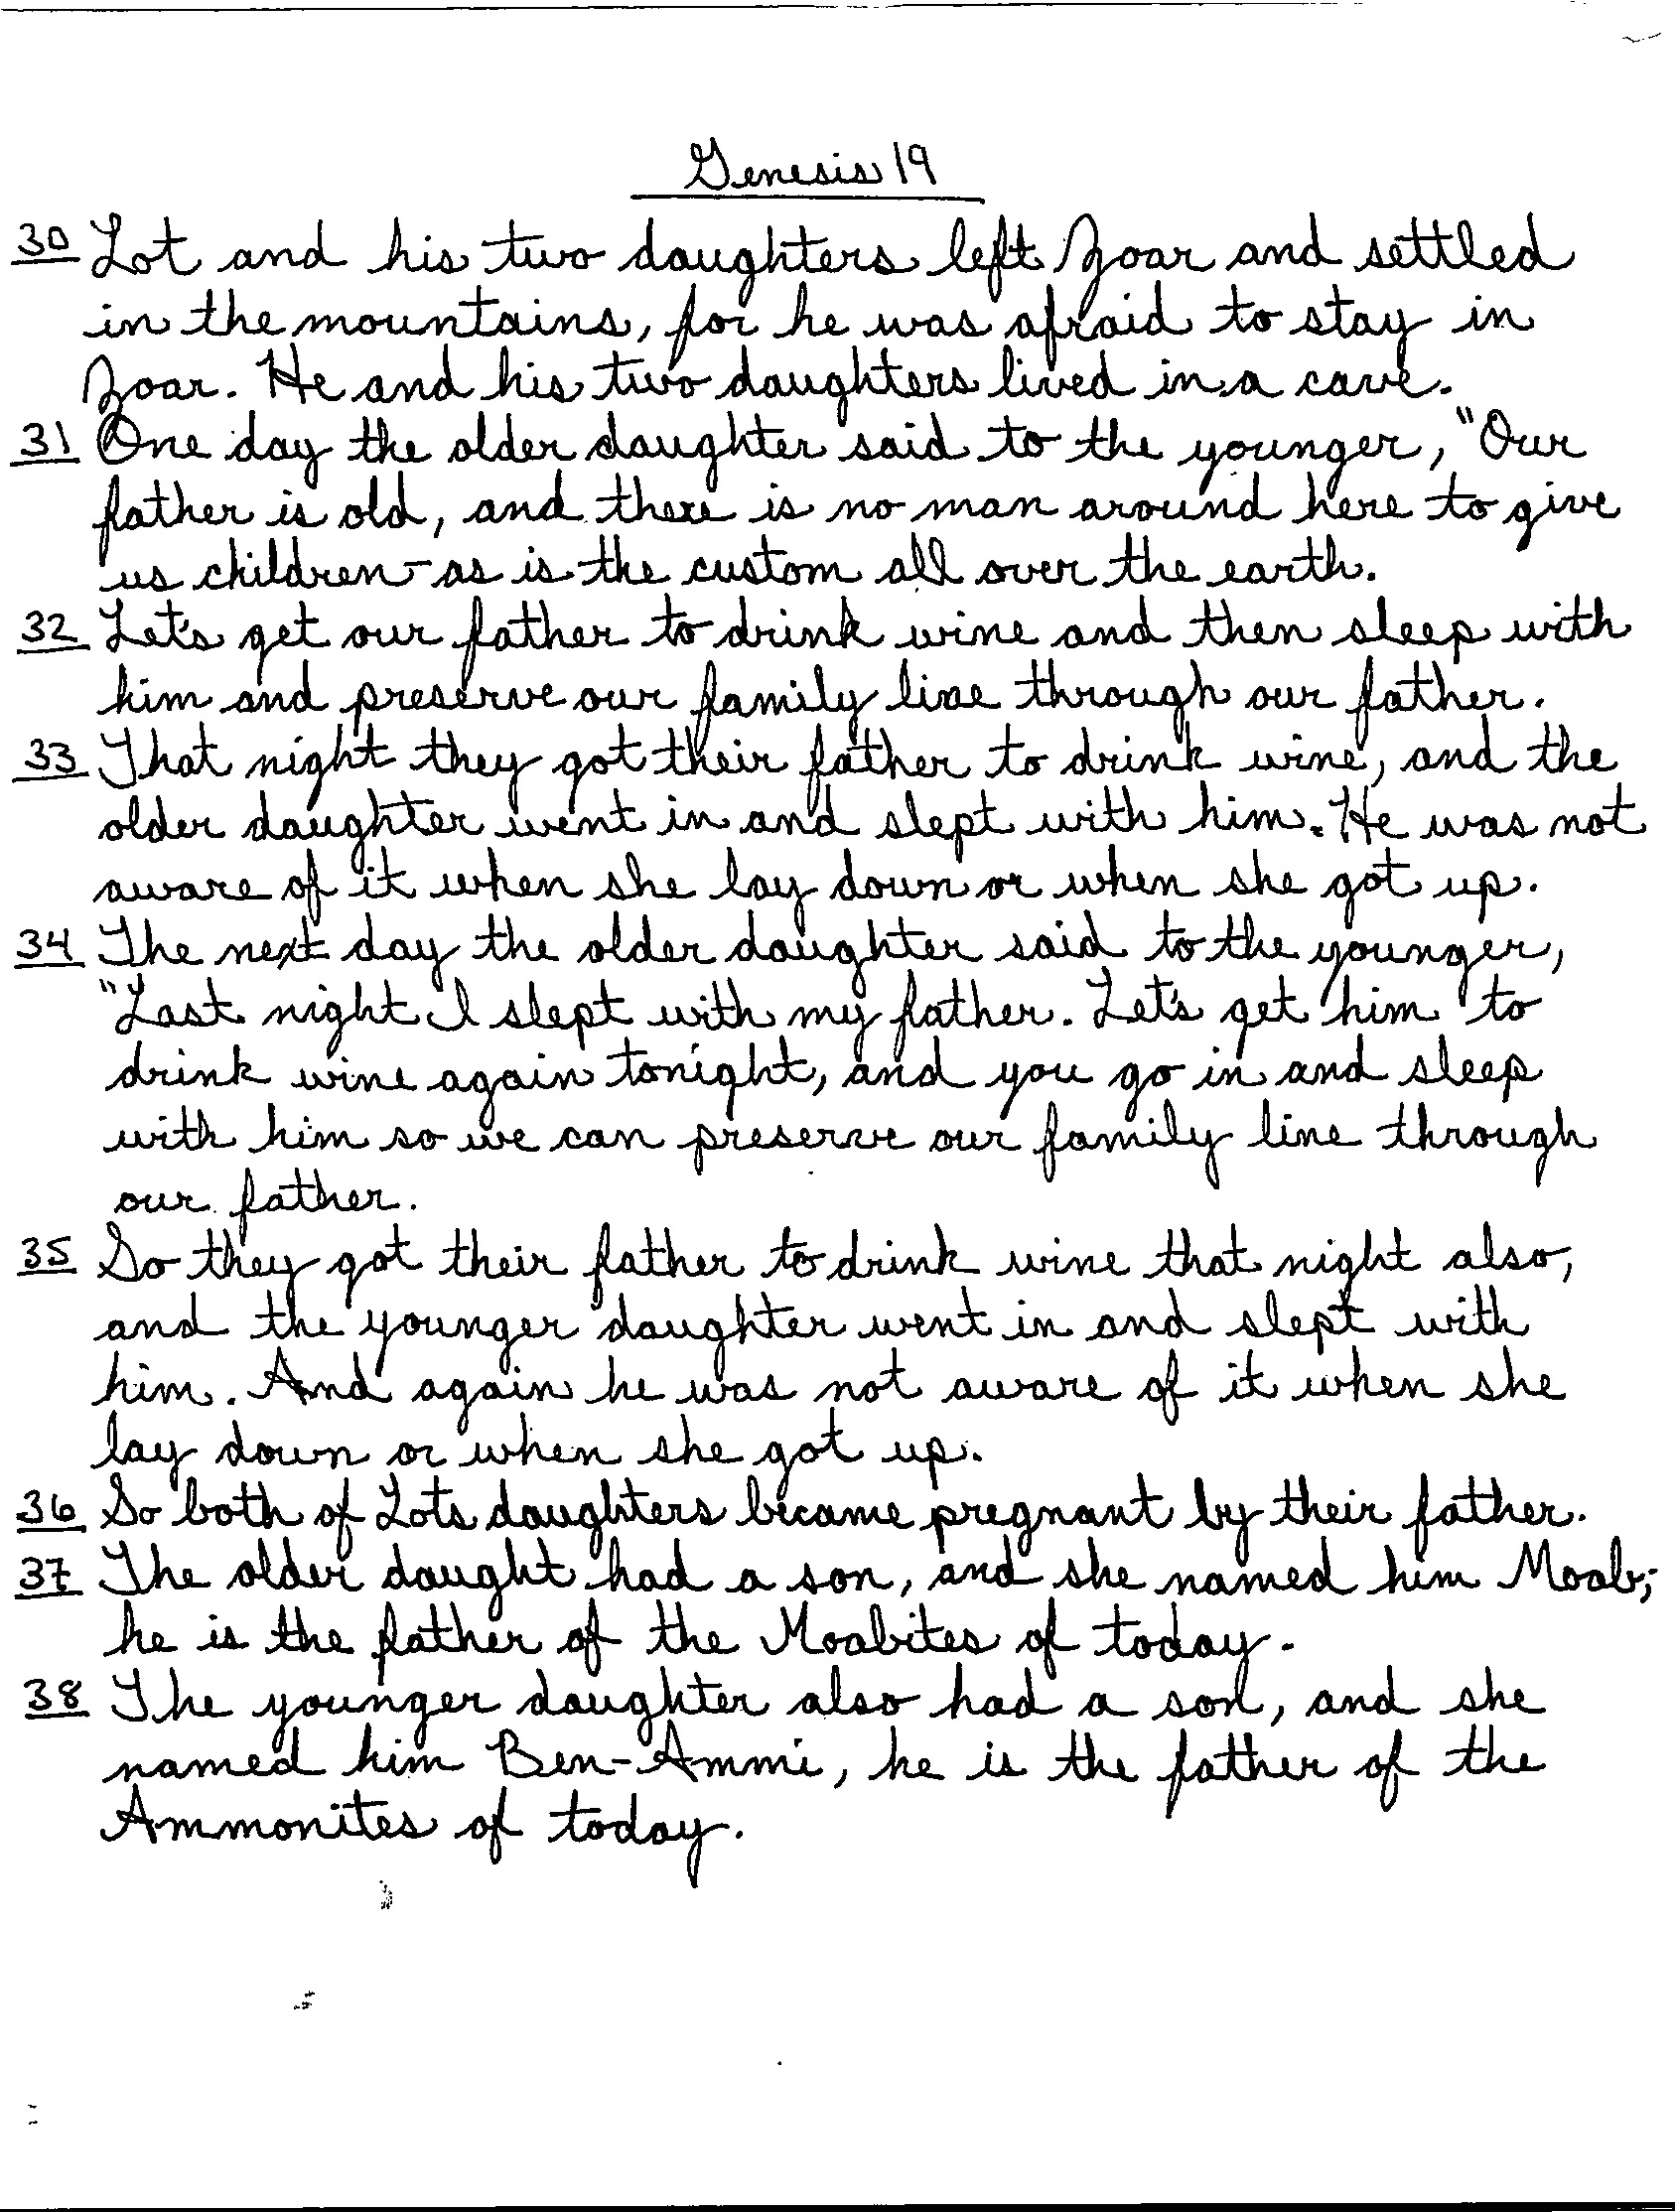 Genesis 19
30 Lot and his two daughters left Zoar and settled
in the mountains, for he was afraid to stay in
Zoar. He and his two daughters lived in a cave.
31 One day the older daughter said to the younger, "Our
father is old, and there is no man around here to give
us children - as is the custom all over the earth.
32 Let's get our father to drink wine and then sleep with
him and preserve our family line through our father.
33 That night they got their father to drink wine, and the
older daughter went in and slept with him. He was not
aware of it when she lay down or when she got up.
34 The next day the older daughter said to the younger,
"Last night I slept with my father. Let's get him to
drink wine again tonight, and you go in and sleep
with him so we can preserve our family line through
our father.
35 So they got their father to drink wine that night also,
and the younger daughter went in and slept with
him. And again he was not aware of it when she
lay down or when she got up.
36 So both of Lots daughters became pregnant by their father.
37 The older daught had a son, and she named him Moab;
he is the father of the Moabites of today.
38 The younger daughter also had a son, and she
named him Ben-Ammi, he is the father of the
Ammonites of today.